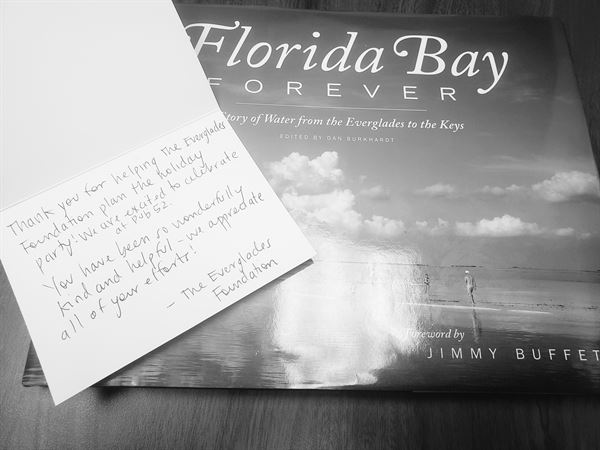 Florida Bay
FOREVER
Story of Water from the Everglades to the Keys
EDITED BY DAN BURKHARDT
Foreword by
JIMMY BUFFET
Thank you for helping The Everglades
Foundation plan the holiday
party! We are excited to celebrate
at Pub 52.
You have been so wonderfully
kind and helpful - we appreciate
all of your efforts!
- The Everglades
Foundation